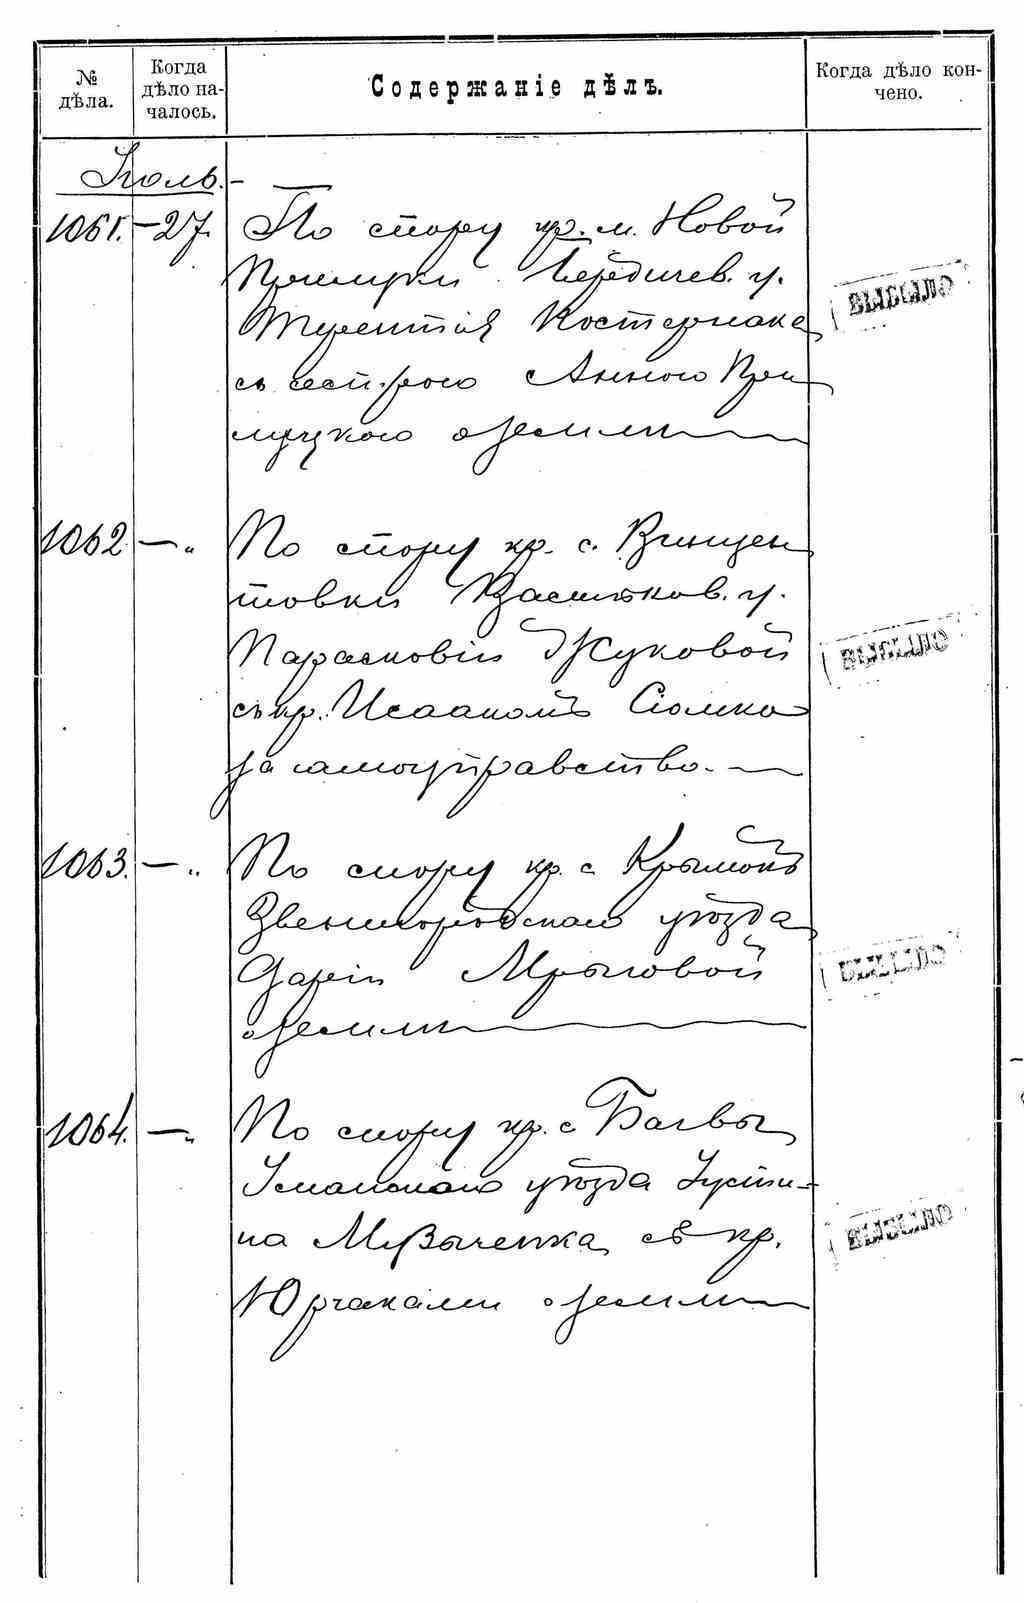 № дѣла.
Когда дѣло на-
чалось.
Содержаніе дѣлъ.
Когда дѣло кон-
чено.
Іюль.
1061. – 27. По спору кр. м. Новой
Прилуки Бердичев. у.
Терентія Костернака
съ сест-рою Анною При
луцкою о земли
1062 – „ По спору кр. с. Винцен
товки Васильков. у.
Парасковіи Жуковой
съ кр. Исаакомъ Сіомко
за самоуправство. –
1063. – „ По спору кр. с. Крымокъ
Звенигородскаго уѣзда
Даріи Мрыговой
о земли
1064. – „ По спору кр. с. Багвы
Уманскаго уѣзда Іусти-
на Музыченка съ кр.
Юрчаками о земли